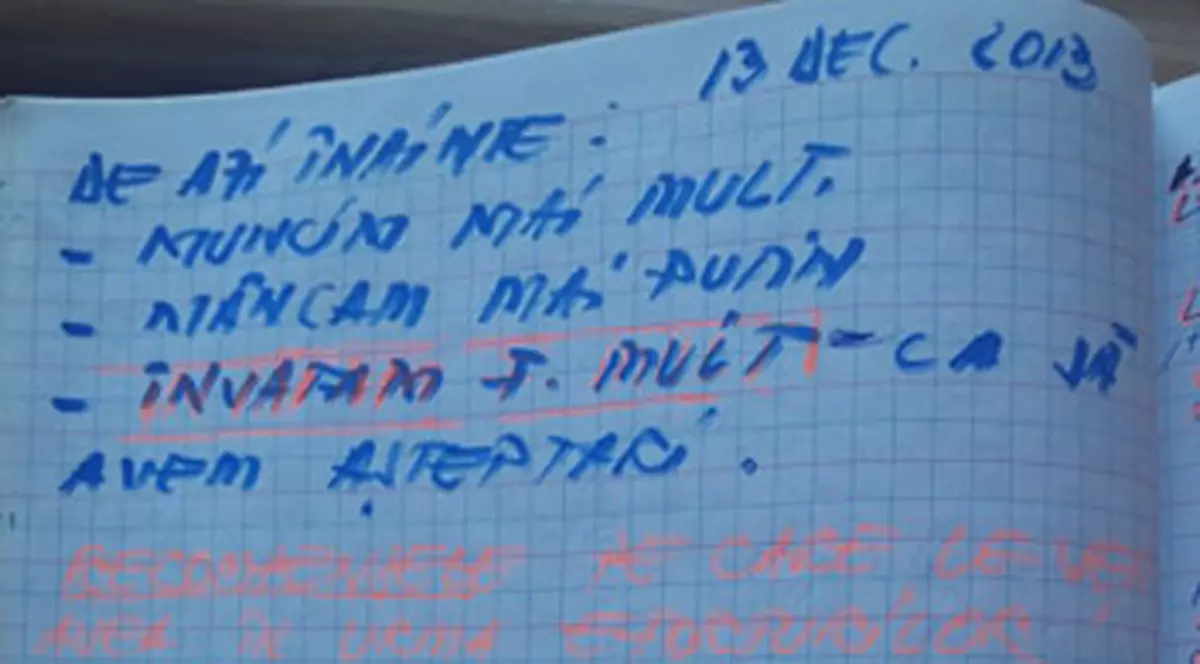 13 DEC. 2013
DE AZI ÎNAINTE:
- MUNCIM MAI MULT.
- MÂNCAM MAI PUTIN
- INVATAM F. MULT - CA SĂ
AVEM AȘTEPTARI.
RECOMPENSELE PE CARE LE VEȚI
AVEA ÎN URMA EFORTURILOR